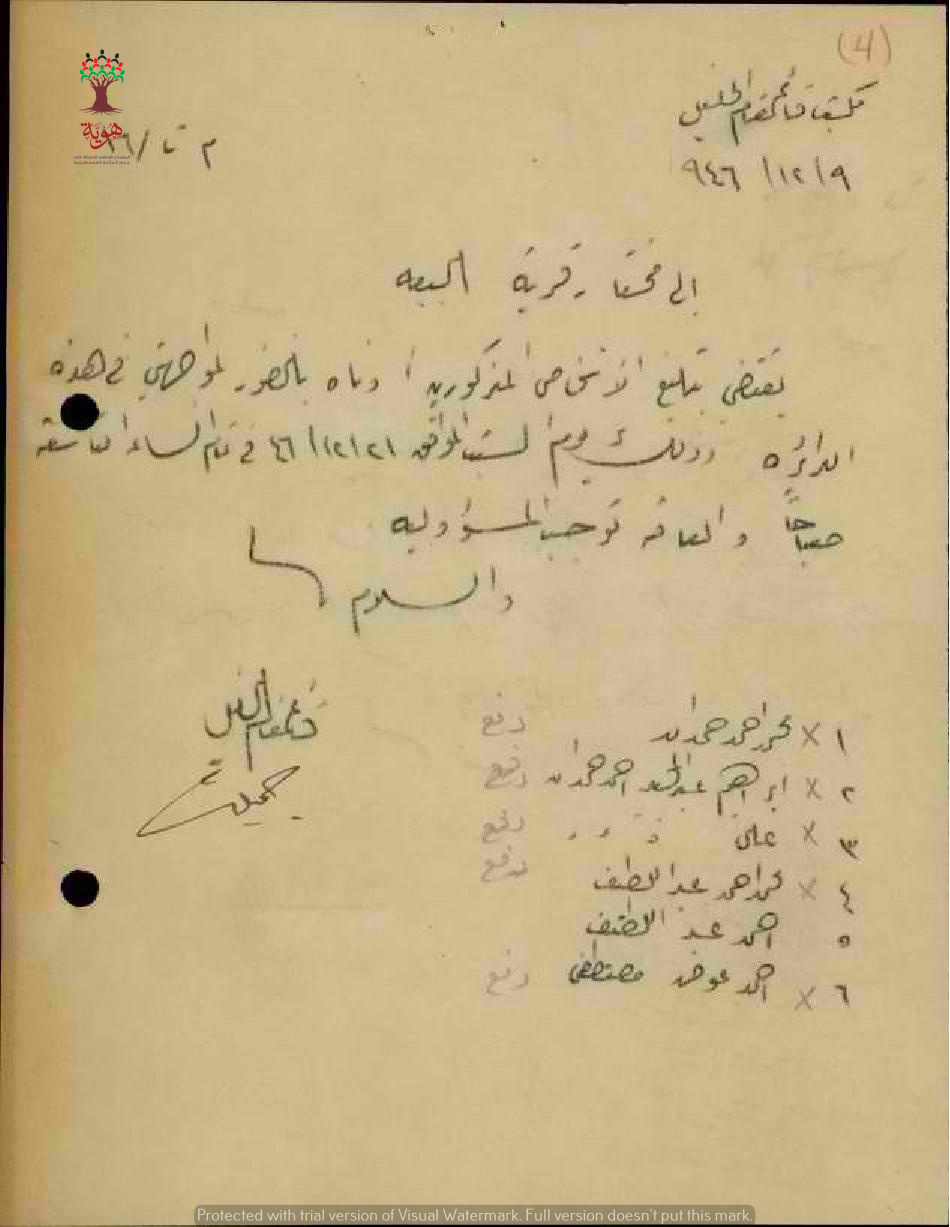 (4)
مكتب قائمقام الخليل
م ت/٢٦
٩/١٢/٩٤٦
هوية
الى مختار قرية البيعه
يقتضي تبليغ الاشخاص المذكورين ادناه بالحضور لمواجهتي في هذه
الدائره وذلك يوم السبت الموافق ٢١/١٢/٤٦ في تمام الساعه التاسعه
صباحاً و توجب المسؤوليه
والسلام
قائمقام الخليل
١ × محمد احمد حمدان دفع
٢ × ابراهيم عبد احمد حمدان دفع
٣ × علي " " " دفع
٤ × محمد احمد عبد اللطيف دفع
٥ احمد عبد اللطيف
٦ × احمد عوض مصطفى دفع
Protected with trial version of Visual Watermark. Full version doesn't put this mark.